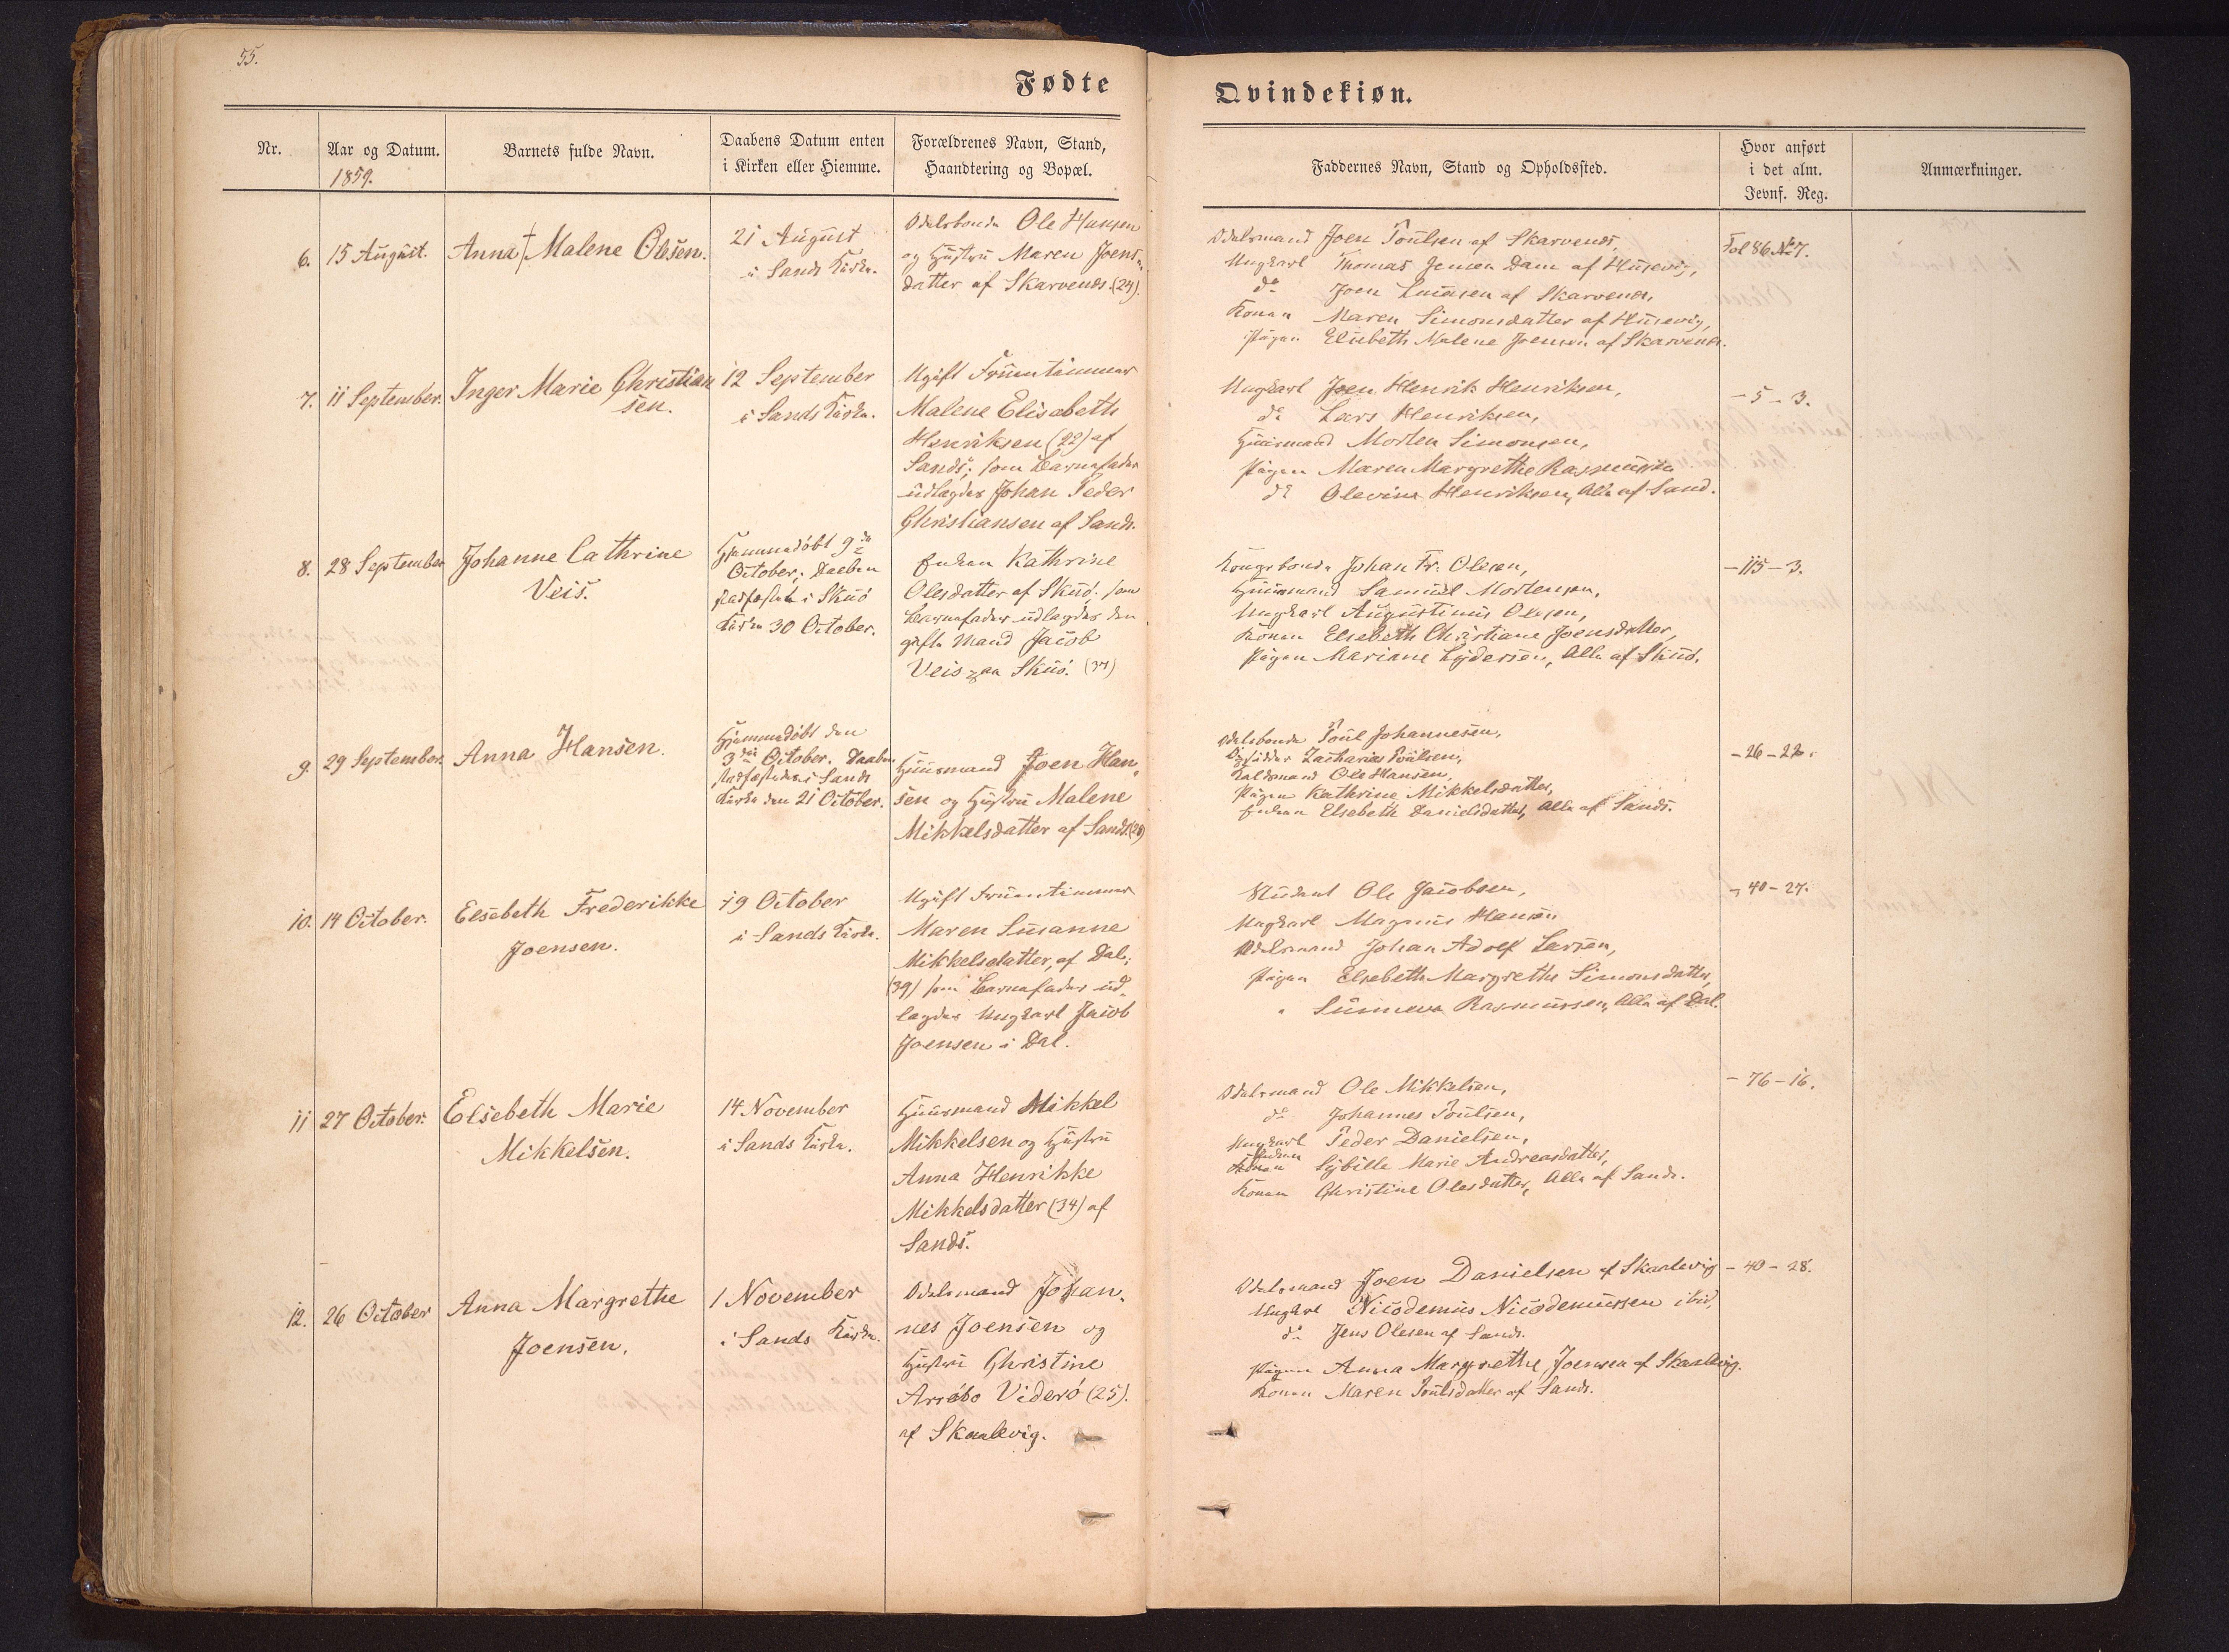 55.
Fødte
Qvindekiøn.
Nr.
Aar og Datum.
1859.
Barnets fulde Navn.
Daabens Datum enten
i Kirken eller Hiemme.
Forældrenes Navn, Stand,
Haandtering og Bopæl.
Faddernes Navn, Stand og Opholdssted.
Hvor anført
i det alm.
Jevnf. Reg.
Anmærkninger.
6.
15 August.
Anna Malene Olesen.
21 August
i Sands Kirke.
Odelsbonde Ole Hansen
og Hustru Maren Joens-
datter af Skarvenes. (24).
Odelsmand Joen Poulsen af Skarvenes,
Ungkarl Thomas Jensen Dam af Husevig,
do Joen af Skarvenes,
Konen Maren Simonsdatter af Husevig,
Pigen Elsebeth Malene Joensen af Skarvenes.
Fol 86 No 7.
7.
11 September.
Inger Marie Christian
sen.
12 September
i Sands Kirke.
Ugift Fruentimmer
Malene Elisabeth
Henriksen (22) af
Sands; som Barnefader
udlægdes Johan Peder
Christiansen af Sands.
Ungkarl Joen Henrik Henriksen,
do Lars Henriksen,
Huusmand Morten Simonsen,
Pigen Maren Margrethe Rasmussen
do Olevine Henriksen, Alle af Sand.
- 5 - 3.
8.
28 September
Johanne Cathrine
Veis.
Hjemmedøbt 9de
October; Daaben
stadfæstet i Skuø
Kirke 30 October.
Enken Kathrine
Olesdatter af Skuø. som
Barnefader udlagdes den
gifte Mand Jacob
Veis paa Skuø. (34)
Kongsbonde Johan Fr: Olesen,
Huusmand Samuel Mortensen,
Ungkarl Augustinus Olesen,
Konen Elsebeth Christiane Joensdatter,
Pigen Mariane Lydersen, Alle af Skuø.
- 115 - 3.
9.
29 September.
Anna Hansen.
Hjemmedøbt den
3die October. Daaben
stadfæstedes i Sands
Kirke den 21 October.
Huusmand Joen Han-
sen og Hustru Malene
Mikkelsdatter af Sands. (28)
Odelsbonde Poul Johannesen,
Opsidder Zacharias Poulsen,
Ole Hansen,
Pigen Kathrine Mikkelsdatter,
Enken Elsebeth Danielsdatter, Alle af Sands.
- 26 - 22.
10.
14 October.
Elsebeth Frederikke
Joensen.
19 October
i Sands Kirke.
Ugift Fruentimmer
Maren Susanne
Mikkelsdatter, af Dal;
(39) som Barnefader ud-
lagdes Ungkarl Jacob
Joensen i Dal.
Student Ole Jacobsen,
Ungkarl Magnus Hansen
Odelsmand Johan Adolf Larsen,
Pigen Elsebeth Margrethe Simonsdatter,
" Sunneva Rasmussen, Alle af Dal.
- 40 - 27.
11
27 October.
Elsebeth Marie
Mikkelsen.
14 November
i Sands Kirke.
Huusmand Mikkel
Mikkelsen og Hustru
Anna Henrikke
Mikkelsdatter (34) af
Sands.
Odelsmand Ole Mikkelsen,
do Johannes Poulsen,
Ungkarl Peder Danielsen,
Enken Sybille Marie Andreasdatter,
Konen Christine Olesdatter, Alle af Sands.
- 76 - 16.
12.
26 October
Anna Margrethe
Joensen.
1 November
i Sands Kirke.
Odelsmand Johan-
nes Joensen og
Hustru Christine
Arrebo Viderø (25).
af Skaalevig.
Odelsmand Joen Danielsen af Skaalevig
Ungkarl Nicodemus Nicodemussen ibid,
do Jens Olesen af Sands.
Pigen Anna Margrethe Joensen af Skaalevig.
Konen Maren Poulsdatter af Sands.
- 40 - 28.